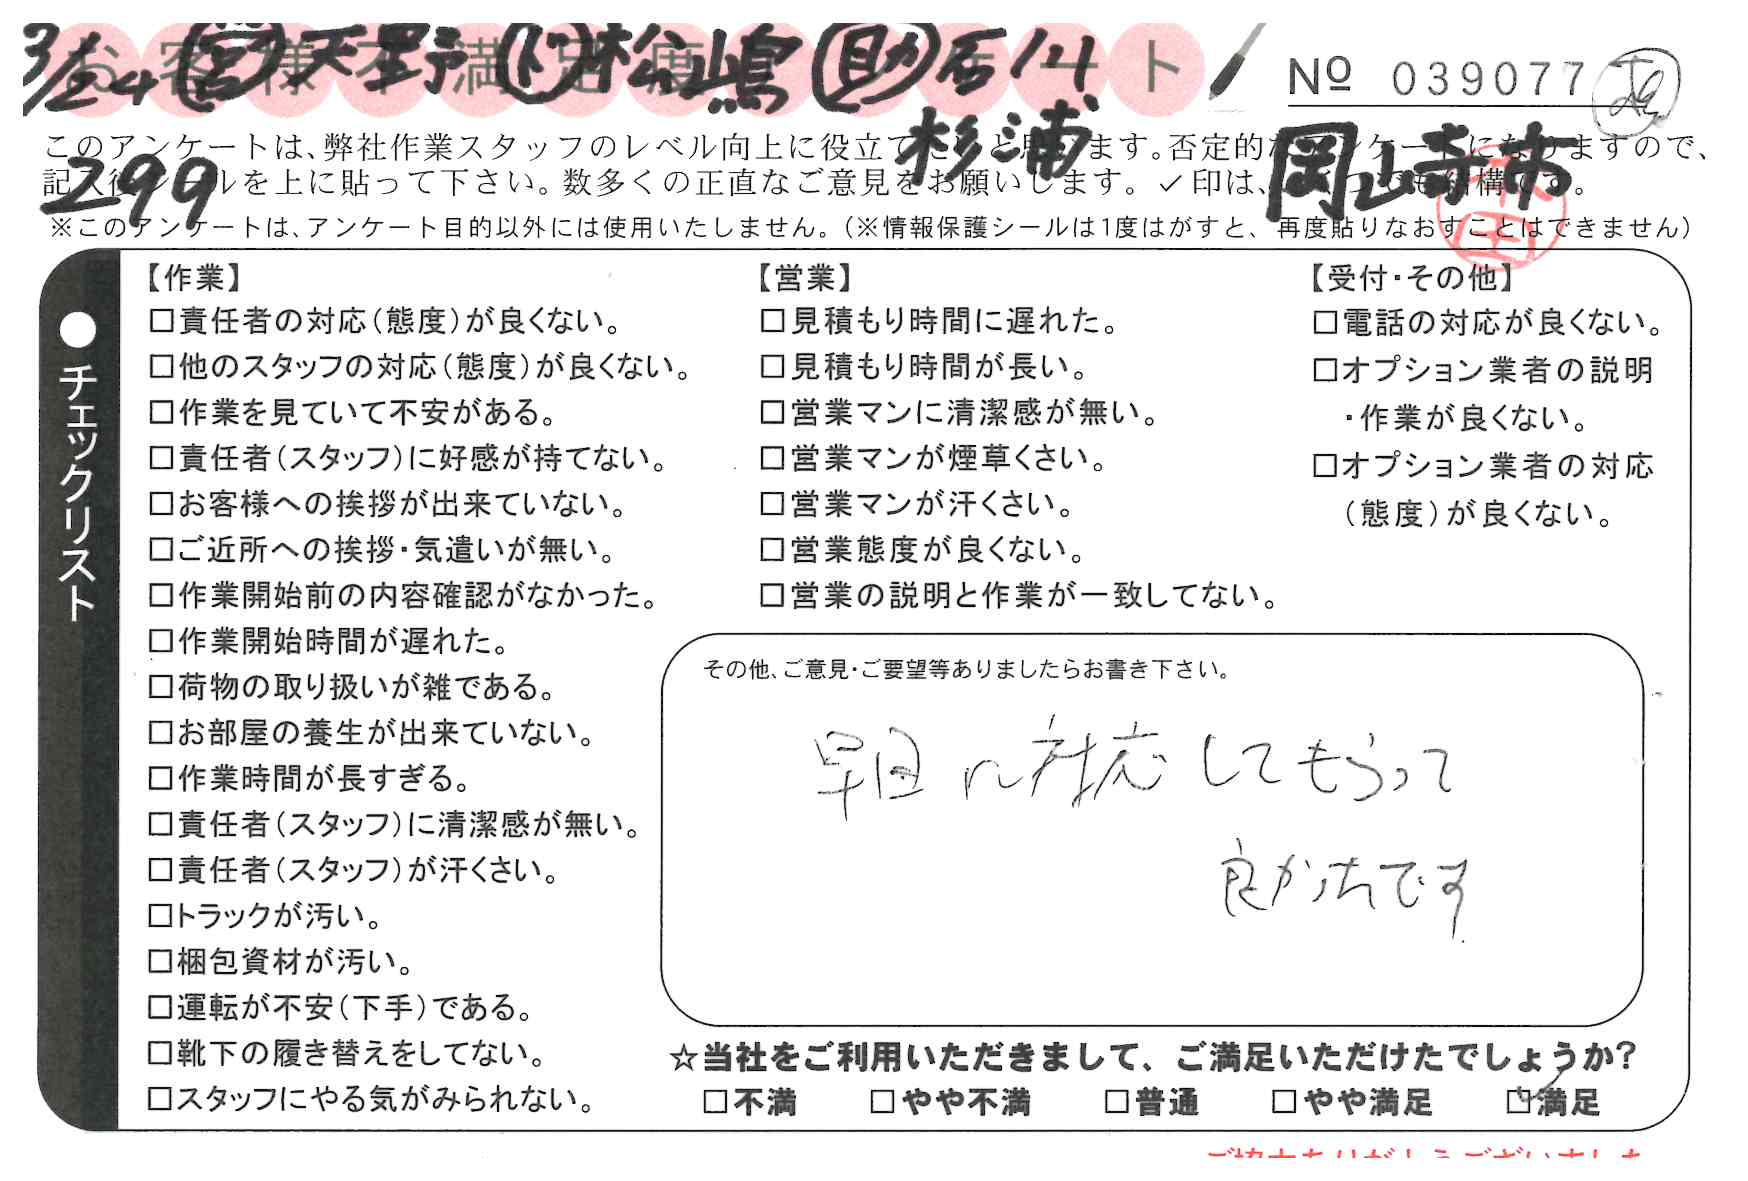 お客様不満足度アンケート
3/24 天野 松嶋 助 石川
杉浦
299
岡崎市
No 039077
このアンケートは、弊社作業スタッフのレベル向上に役立てたいと思います。否定的なアンケートになりますので、
記入後シールを上に貼って下さい。数多くの正直なご意見をお願いします。✓印は、いくつでも結構です。
※このアンケートは、アンケート目的以外には使用いたしません。(※情報保護シールは1度はがすと、再度貼りなおすことはできません)
●チェックリスト
【作業】
□責任者の対応(態度)が良くない。
□他のスタッフの対応(態度)が良くない。
□作業を見ていて不安がある。
□責任者(スタッフ)に好感が持てない。
□お客様への挨拶が出来ていない。
□ご近所への挨拶・気遣いが無い。
□作業開始前の内容確認がなかった。
□作業開始時間が遅れた。
□荷物の取り扱いが雑である。
□お部屋の養生が出来ていない。
□作業時間が長すぎる。
□責任者(スタッフ)に清潔感が無い。
□責任者(スタッフ)が汗くさい。
□トラックが汚い。
□梱包資材が汚い。
□運転が不安(下手)である。
□靴下の履き替えをしてない。
□スタッフにやる気がみられない。
【営業】
□見積もり時間に遅れた。
□見積もり時間が長い。
□営業マンに清潔感が無い。
□営業マンが煙草くさい。
□営業マンが汗くさい。
□営業態度が良くない。
□営業の説明と作業が一致してない。
【受付・その他】
□電話の対応が良くない。
□オプション業者の説明
・作業が良くない。
□オプション業者の対応
(態度)が良くない。
その他、ご意見・ご要望等ありましたらお書き下さい。
早目に対応してもらって
良かったです
☆当社をご利用いただきまして、ご満足いただけたでしょうか?
□不満 □やや不満 □普通 □やや満足 ☑満足
ご協力ありがとうございました